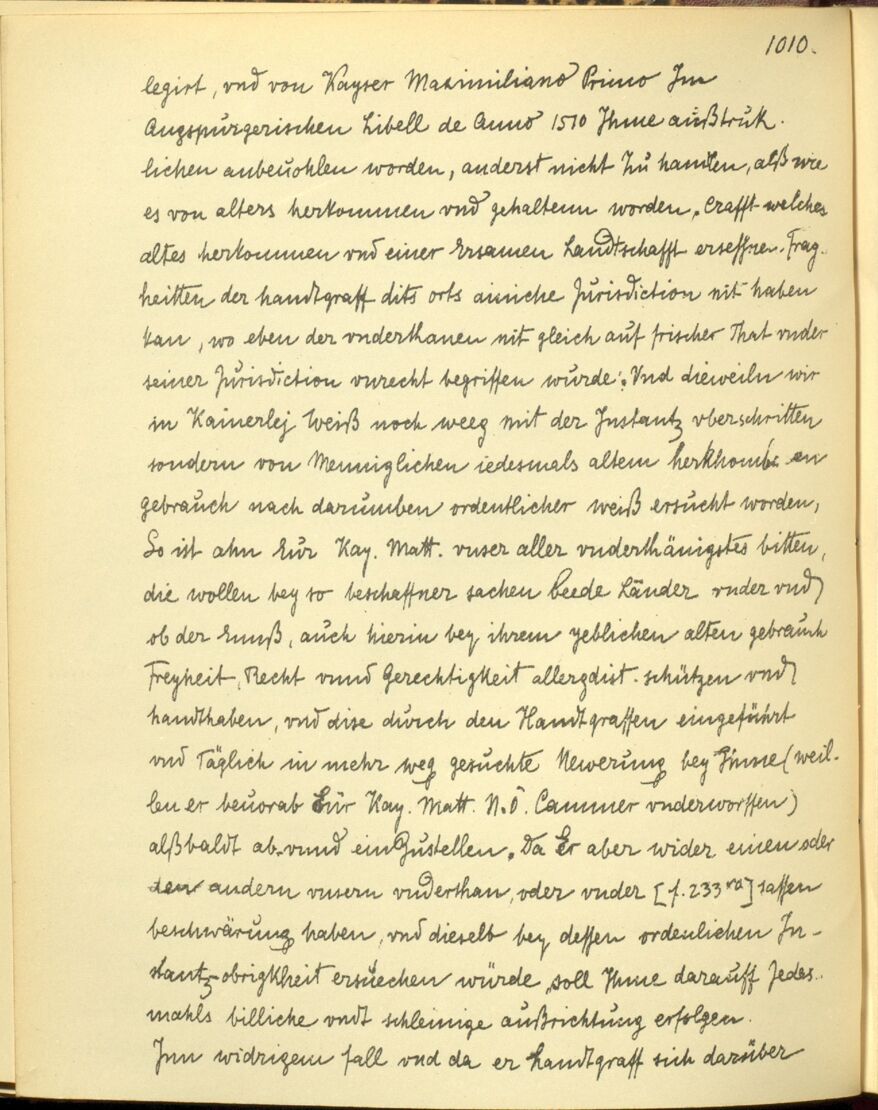 1010.
legirt, vnd von Kayser Maximiliano Primo Im
Augspurgerischen Libell de Anno 1510 Ihme außtruk.
lichen anbeuohlen worden, anderst nicht zu handlen, alß wie
es von alters herkommen vnd gehaltenn worden, Crafft welches
altes herkommen vnd einer Ersamen Landtschafft Frag.
heitten der handtgraff dits orts ainiche Jurisdiction nit haben
kan, wo eben der vnderthanen nit gleich auf frischer That vnder
seiner Jurisdiction vnrecht begriffen wurde: Vnd dieweiln wir
in Kainerlej Weiß noch weeg mit der Instantz vberschritten
sondern von Menniglichen iedesmals altem
gebrauch nach darumben ordentlicher weiß ersucht worden,
So ist ahn Eür Kay. Matt. vnser aller vnderthänigstes bitten,
die wollen bey so beschaffner sachen beede Länder vnder vnd
ob der Ennß, auch hierin bey ihrem yeblichen alten gebrauch
Freyheit, Recht vnnd Gerechtigkeit allergdist. schützen vnd
handthaben, vnd dise durch den Handtgraffen eingeführt
vnd Täglich in mehr weg gesuchte Newerung bey Ihme (weil.
len er beuorab Eür Kay. Matt. N.Ö. Cammer vnderworffen)
alßbaldt ab. vnnd ein Zustellen. Da Er aber wider einen oder
den andern vnsern vnderthan, oder vnder [f. 233 vo] sassen
beschwärung haben, vnd dieselb bey dessen ordenlichen In-
stantz-obrigkheit ersuechen würde, soll Ihme darauff Jedes.
mahls billiche vndt schleinige außrichtung erfolgen.
Inn widrigem fall vnd da er handtgraff sich darüber